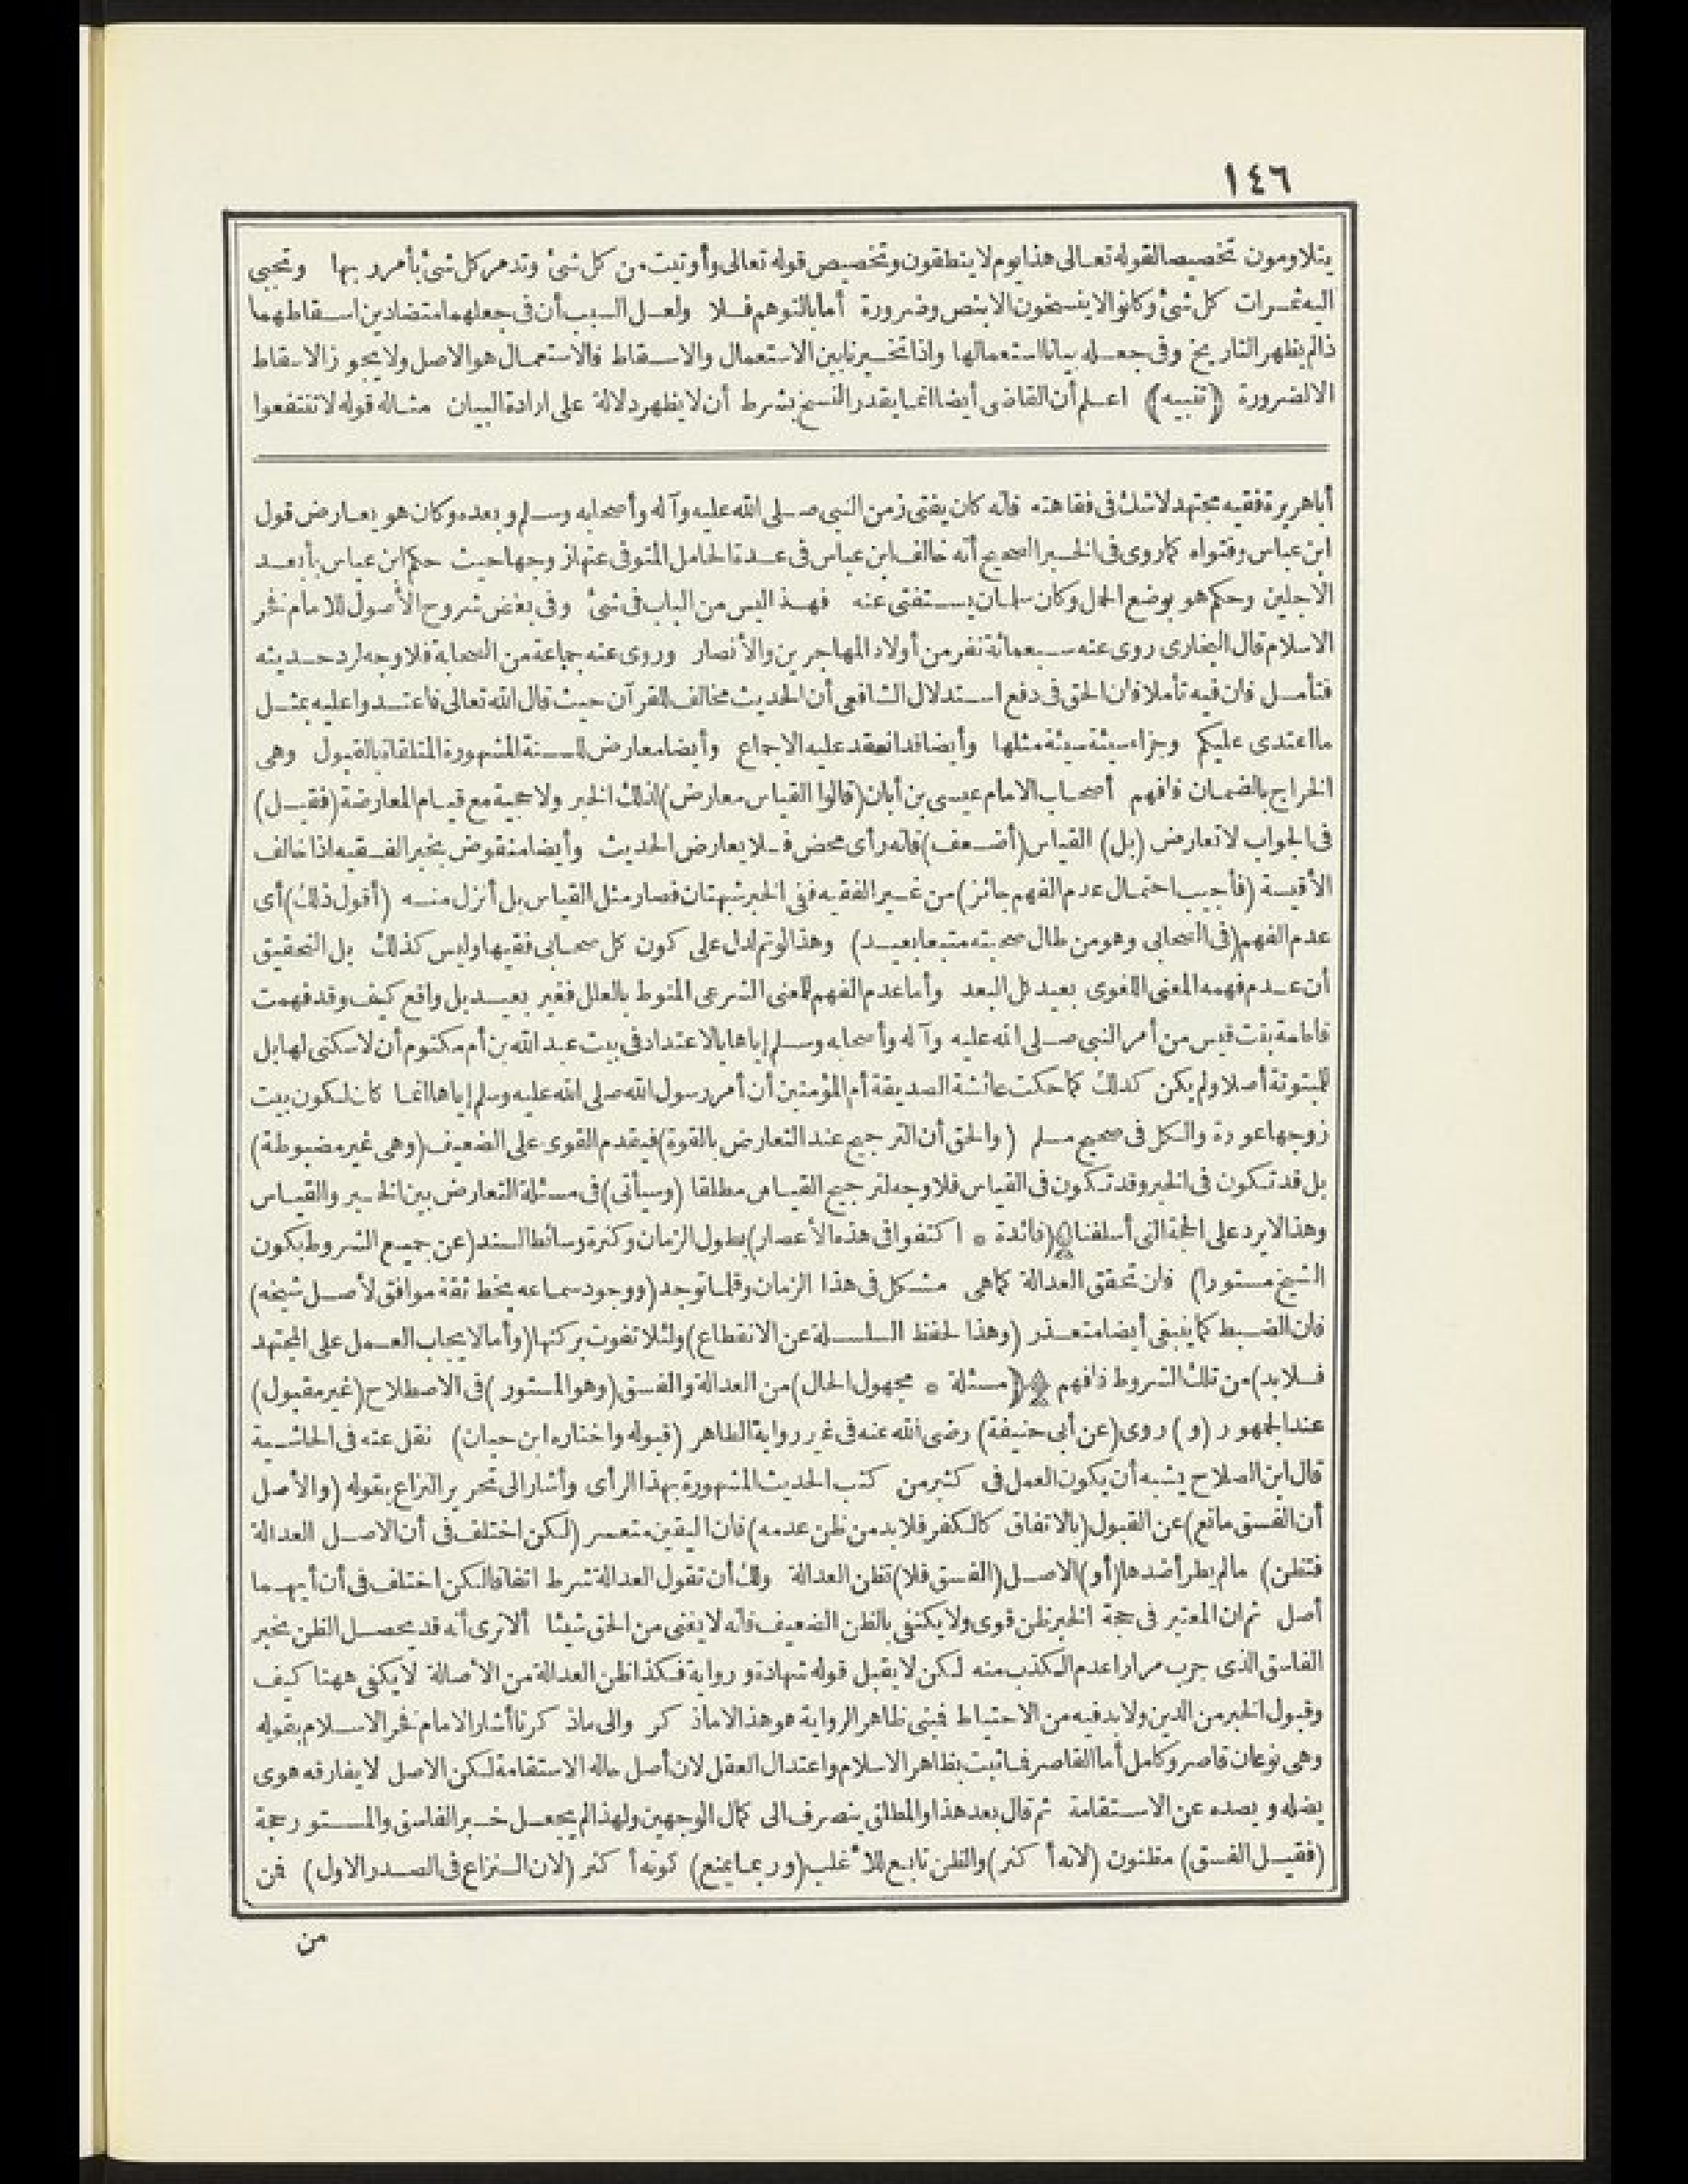 ١٤٦
يتلاومون تخصيصا لقوله تعالى هذا يوم لا ينطقون وتخصيص قوله تعالى وأوتيت من كل شئ وتدمر كل شئ بأمر ربها وتجبى
اليه ثمرات كل شئ وكانوا لا ينسخون الا بنص وضرورة أما بالتوهم فلا ولعل السبب أن في جعلهما متضادين اسقاطهما
اذا لم يظهر التاريخ وفي جعله بيانا استعمالها واذا تخيرنا بين الاستعمال والاسقاط فالاستعمال هو الاصل ولا يجوز الاسقاط
الا لضرورة ﴿تنبيه﴾ اعلم أن القاضي أيضا انما يقدر النسخ بشرط أن لا يظهر دلالة على ارادة البيان مثاله قوله لا تنتفعوا
أبا هريرة فقيه مجتهد لا شك في فقاهته فانه كان يفتى زمن النبي صلى الله عليه وآله وأصحابه وسلم وبعده وكان هو يعارض قول
ابن عباس وفتواه كما روى في الخبر الصحيح أنه خالف ابن عباس في عدة الحامل المتوفى عنها زوجها حيث حكم ابن عباس بأبعد
الاجلين وحكم هو بوضع الحمل وكان سلمان يستفتى عنه فهذا ليس من الباب في شئ وفي بعض شروح الأصول للامام فخر
الاسلام قال البخارى روى عنه سبعمائة نفر من أولاد المهاجرين والأنصار وروى عنه جماعة من الصحابة فلا وجه لرد حديثه
فتأمل فان فيه تأملا فان الحق في دفع استدلال الشافعى أن الحديث مخالف للقرآن حيث قال الله تعالى فاعتدوا عليه بمثل
ما اعتدى عليكم وجزاء سيئة سيئة مثلها وأيضا قد انعقد عليه الاجماع وأيضا معارض للسنة المشهورة المتلقاة بالقبول وهى
الخراج بالضمان فافهم أصحاب الامام عيسى بن أبان (قالوا القياس معارض) لذلك الخبر ولا حجية مع قيام المعارضة (فقيل)
في الجواب لا تعارض (بل) القياس (أضعف) فانه رأى محض فلا يعارض الحديث وأيضا منقوض بخبر الفقيه اذا خالف
الأقيسة (فأجيب احتمال عدم الفهم جائز) من غير الفقيه ففي الخبر شبهتان فصار مثل القياس بل أنزل منه (أقول ذلك) أى
عدم الفهم (في الصحابى وهو من طال صحبته متبعا بعيد) وهذا لو تم لدل على كون كل صحابى فقيها وليس كذلك بل التحقيق
أن عدم فهمه المعنى اللغوى بعيد كل البعد وأما عدم الفهم للمعنى الشرعى المنوط بالعلل فغير بعيد بل واقع كيف وقد فهمت
فاطمة بنت قيس من أمر النبي صلى الله عليه وآله وأصحابه وسلم إياها بالاعتداد في بيت عبد الله بن أم مكتوم أن لا سكنى لها بل
للمبتوتة أصلا ولم يكن كذلك كما حكت عائشة الصديقة أم المؤمنين أن أمر رسول الله صلى الله عليه وسلم إياها انما كان لكون بيت
زوجها عورة والكل في صحيح مسلم (والحق أن الترجيح عند التعارض بالقوة) فيقدم القوى على الضعيف (وهى غير مضبوطة)
بل قد تكون في الخبر وقد تكون في القياس فلا وجه لترجيح القياس مطلقا (وسيأتى) في مسئلة التعارض بين الخبر والقياس
وهذا لا يرد على الحجة التي أسلفنا ﴿(فائدة * اكتفوا في هذه الأعصار) بطول الزمان وكثرة وسائط السند (عن جميع الشروط بكون
الشيخ مستورا) فان تحقق العدالة كما هي مشكل في هذا الزمان وقلما توجد (ووجود سماعه بخط ثقة موافق لأصل شيخه)
فان الضبط كما ينبغى أيضا متعذر (وهذا لحفظ السلسلة عن الانقطاع) ولئلا تفوت بركتها (وأما لا يجاب العمل على المجتهد
فلا بد) من تلك الشروط فافهم ﴿(مسئلة * مجهول الحال) من العدالة والفسق (وهو المستور) في الاصطلاح (غير مقبول)
عند الجمهور (و) روى (عن أبى حنيفة) رضى الله عنه في غير رواية الظاهر (قبوله واختاره ابن حبان) نقل عنه في الحاشية
قال ابن الصلاح يشبه أن يكون العمل في كثير من كتب الحديث المشهورة بهذا الرأى وأشار الى تحرير النزاع بقوله (والأصل
أن الفسق مانع) عن القبول (بالاتفاق كالكفر فلا بد من ظن عدمه) فان اليقين متعسر (لكن اختلف في أن الاصل العدالة
فتظن) ما لم يطرأ ضدها (أو) الاصل (الفسق فلا) تظن العدالة ولك أن تقول العدالة شرط اتفاقا لكن اختلف في أن أيهما
أصل ثم ان المعتبر في حجة الخبر ظن قوى ولا يكتفى بالظن الضعيف فانه لا يغنى من الحق شيئا ألا ترى أنه قد يحصل الظن بخبر
الفاسق الذى جرب مرارا عدم الكذب منه لكن لا يقبل قوله شهادة ورواية فكذا ظن العدالة من الأصالة لا يكفى ههنا كيف
وقبول الخبر من الدين ولا بد فيه من الاحتياط فمبنى ظاهر الرواية هو هذا لا ما ذكر والى ما ذكرنا أشار الامام فخر الاسلام بقوله
وهى نوعان قاصر وكامل أما القاصر فما ثبت بظاهر الاسلام واعتدال العقل لان أصل حاله الاستقامة لكن الاصل لا يفارقه هوى
يضله ويصده عن الاستقامة ثم قال بعد هذا والمطلق ينصرف الى كمال الوجهين ولهذا لم يجعل خبر الفاسق والمستور حجة
(فقيل الفسق) مظنون (لانه أكثر) والظن تابع للأغلب (وربما يمنع) كونه أكثر (لان النزاع في الصدر الاول) فمن
من